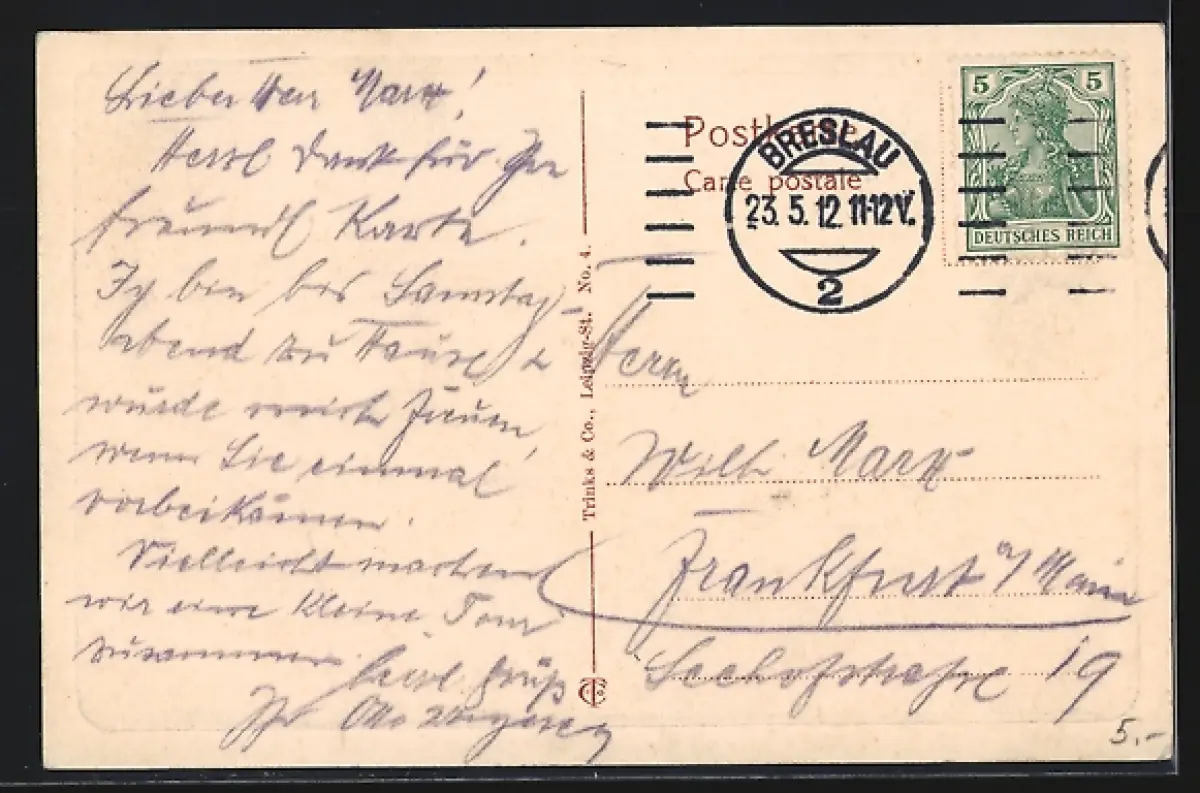 Lieber Herr Marx!
Herzl Dank für Ihre
freundl Karte.
Ich bin bis Samstag-
abend zu Hause &
würde mich freuen,
wenn Sie einmal
vorbeikämen.
Vielleicht machen
wir eine kleine Tour
zusammen.
Herzl. Gruß
Ihr Otto
Trinks & Co., Leipzig-St. No. 4.
Postkarte
Carte postale
BRESLAU
23. 5. 12. 11-12 V.
2
5 5
DEUTSCHES REICH
Herrn
Wilh Marx
Frankfurt a/Main
Seehofstraße 19
5.-